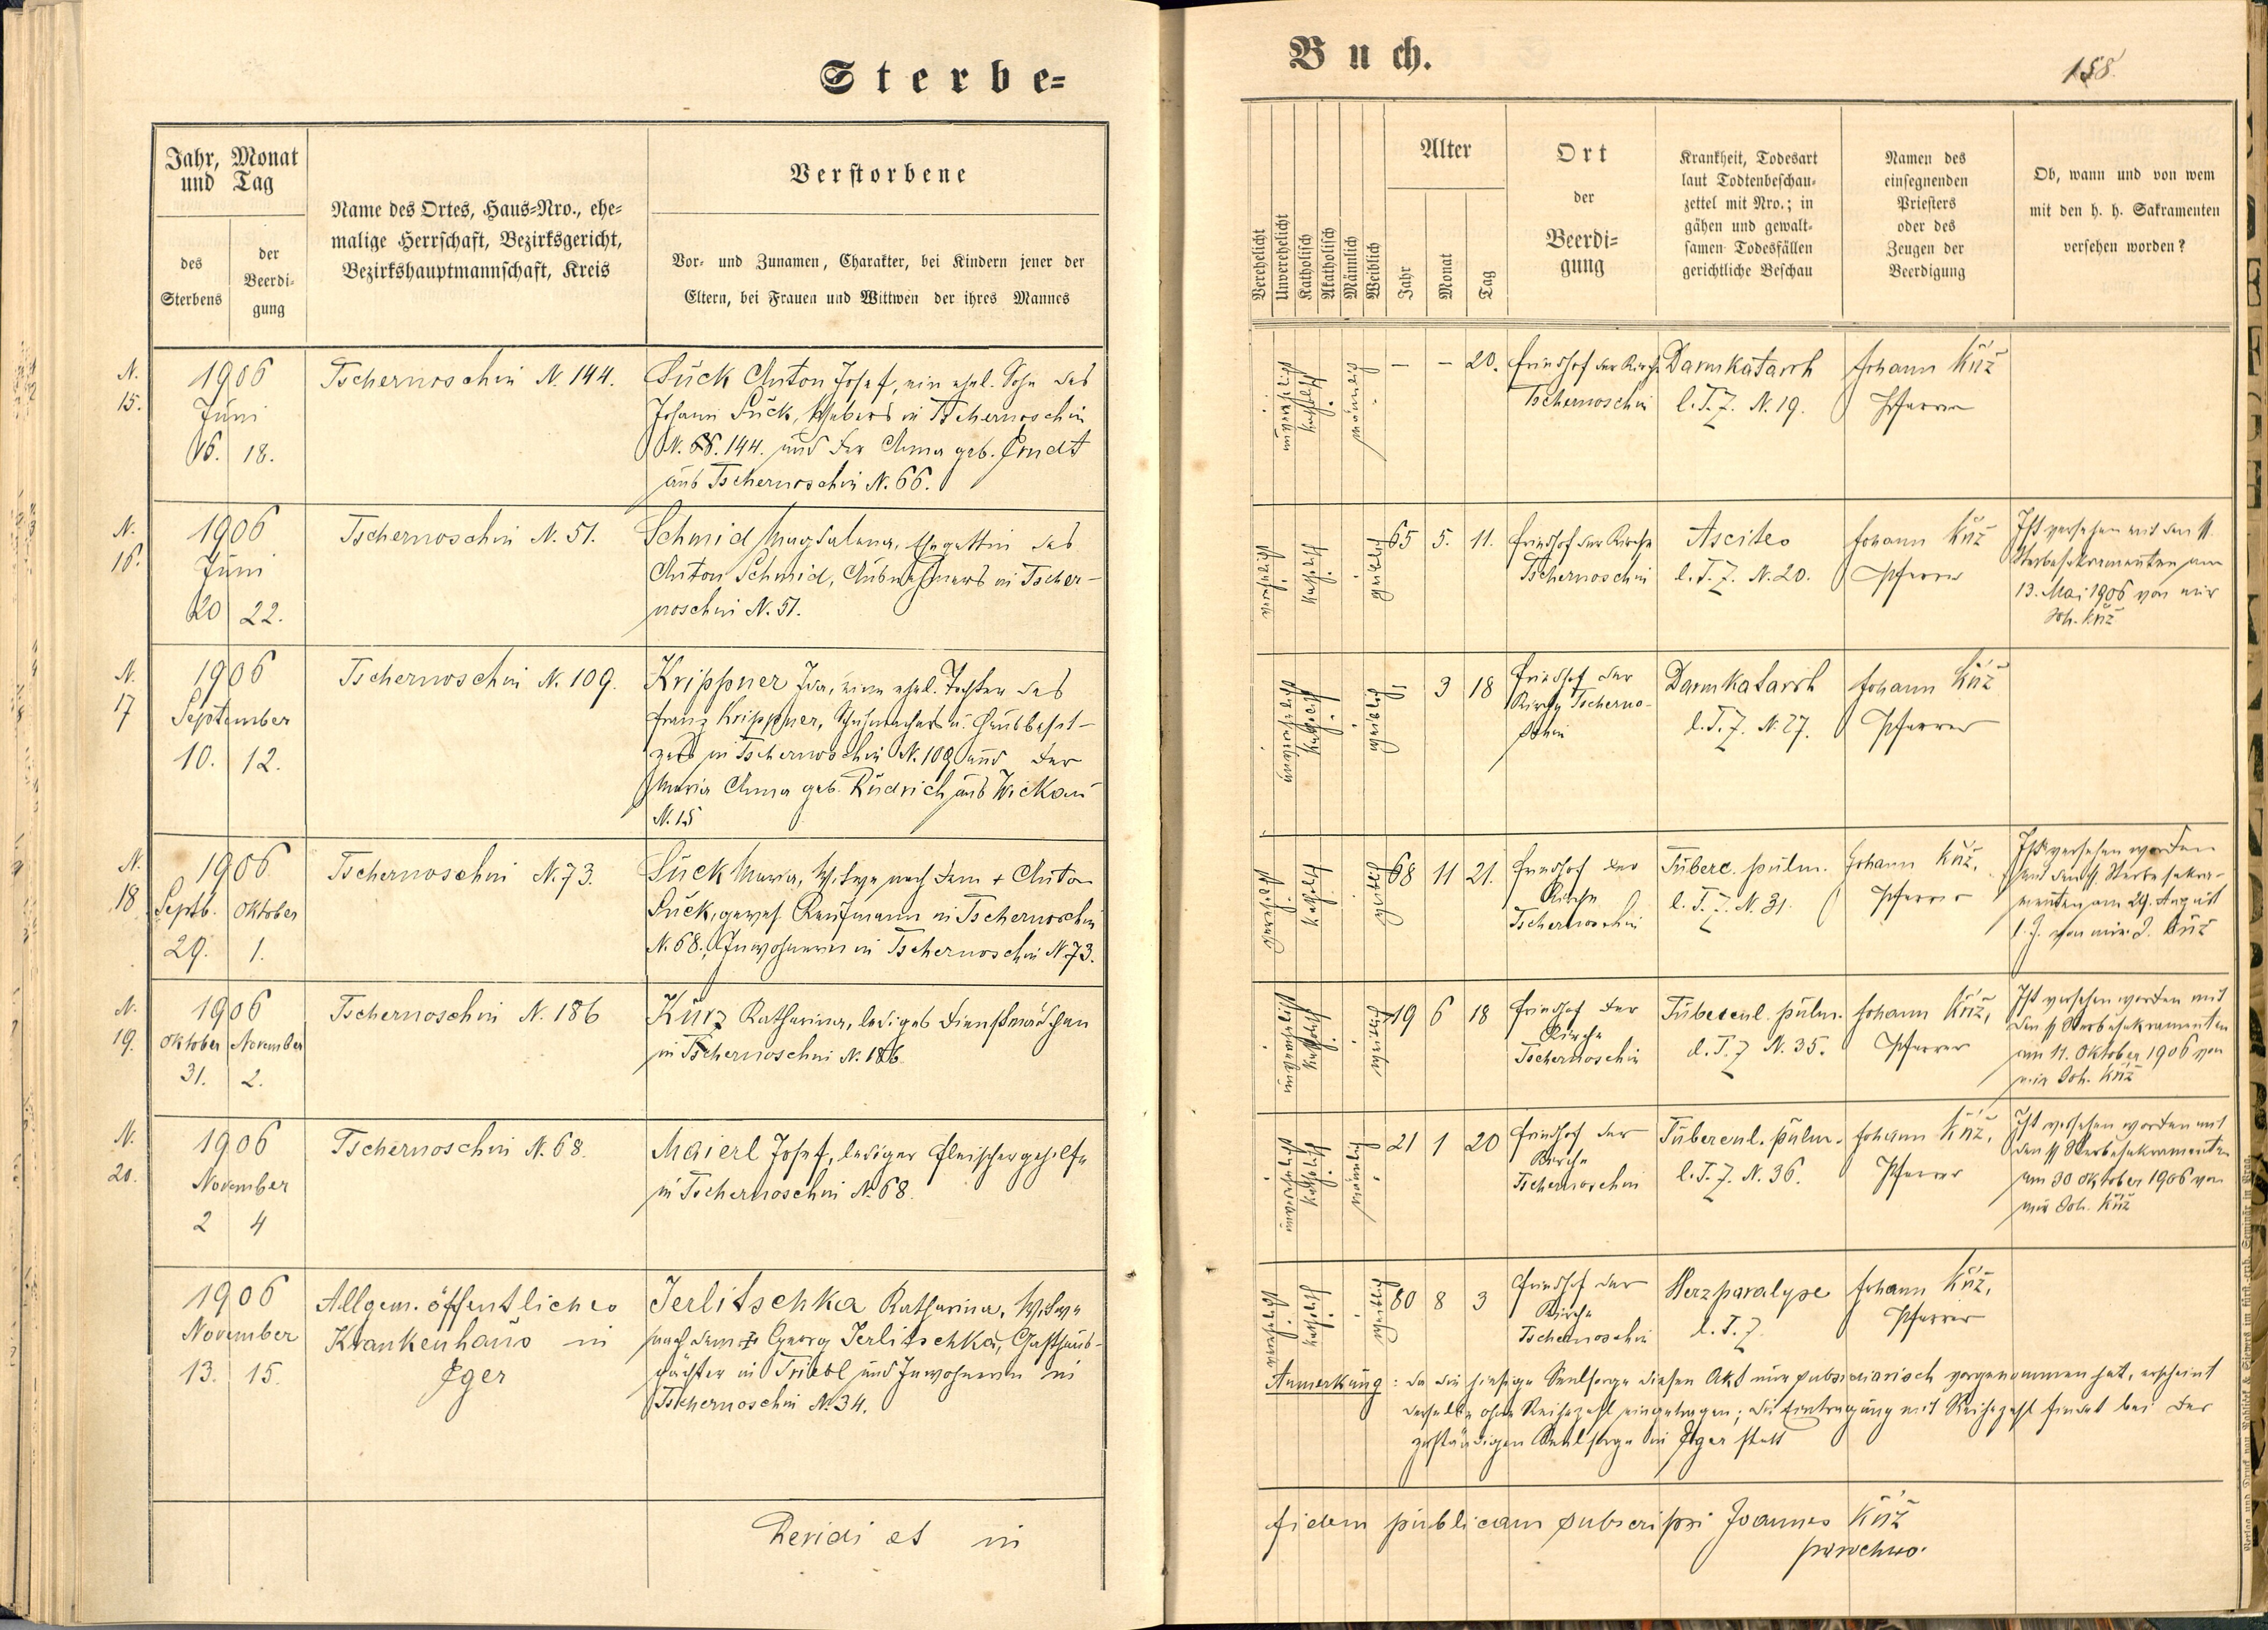 Sterbe=
Jahr, Monat
und Tag
des
Sterbens
der
Beerdi-
gung
Name des Ortes, Haus-Nro., ehe-
malige Herrschaft, Bezirksgericht,
Bezirkshauptmannschaft, Kreis
Verstorbene
Vor- und Zunamen, Charakter, bei Kindern jener der
Eltern, bei Frauen und Wittwen der ihres Mannes
N. 15.
1906
Juni
16. 18.
Tschernoschin N. 144.
Suck Anton Josef, ein ehel. Sohn des
Johann Suck, Webers in Tschernoschin
N. 144. und der Anna geb.
aus Tschernoschin N. 66.
N. 16.
1906
Juni
20 22.
Tschernoschin N. 51.
Schmid Magdalena, Ehegattin des
Anton Schmid, Ausnehmers in Tscher-
noschin N. 51.
N. 17
1906
September
10. 12.
Tschernoschin N. 109.
Krippner Ida, eine ehel. Tochter des
Franz Krippner, Schuhmachers u. Hausbesit-
zers in Tschernoschin N. 109 und der
Maria Anna geb. Rudrich aus Wickau
N. 15
N. 18
1906
Septb. Oktober
29. 1.
Tschernoschin N. 73.
Suck Maria, Witwe nach dem + Anton
Suck, gewes. Kaufmann in Tschernoschin
N. 68. Inwohnerin in Tschernoschin N. 73.
N. 19.
1906
Oktober November
31. 2.
Tschernoschin N. 186
Kurz Katharina, lediges Dienstmädchen
in Tschernoschin N. 186
N. 20.
1906
November
2 4
Tschernoschin N. 68.
Maierl Josef, lediger Fleischergehilfe
in Tschernoschin N. 68.
1906
November
13. 15.
Allgem. öffentliches
Krankenhaus in
Eger
Jerlitschka Katharina, Witwe
nach dem + Georg Jerlitschka, Gasthaus-
pächter in Triebl und Inwohnerin in
Tschernoschin N. 34.
Revidi et in
Buch.
158.
Verehelicht
Unverehelicht
Katholisch
Akatholisch
Männlich
Weiblich
Alter
Jahr
Monat
Tag
Ort
der
Beerdi=
gung
Krankheit, Todesart
laut Todtenbeschau-
zettel mit Nro.; in
gähen und gewalt-
samen Todesfällen
gerichtliche Beschau
Namen des
einsegnenden
Priesters
oder des
Zeugen der
Beerdigung
Ob, wann und von wem
mit den h. h. Sakramenten
versehen worden?
unverehelicht
katholisch
männlich
– – 20.
Friedhof der Kirche
Tschernoschin
Darmkatarrh
l. T. Z. N. 19.
Johann Kříž
Pfarrer
verehelicht
katholisch
weiblich
65 5. 11.
Friedhof der Kirche
Tschernoschin
Ascites
l. T. Z. N. 20.
Johann Kříž
Pfarrer
Ist versehen mit den hl.
Sterbesakramenten am
13. Mai 1906 von mir
Joh. Kříž
unverehelicht
katholisch
weiblich
3 18
Friedhof der
Kirche Tscherno-
schin
Darmkatarrh
l. T. Z. N. 27.
Johann Kříž
Pfarrer
verehelicht
katholisch
weiblich
68 11 21.
Friedhof der
Kirche
Tschernoschin
Tuberc. pulm.
l. T. Z. N. 31.
Johann Kříž,
Pfarrer
Ist versehen worden
mit den hl. Sterbesakra-
menten am 29. August
l. J. von mir J. Kříž
unverehelicht
katholisch
weiblich
19 6 18
Friedhof der
Kirche
Tschernoschin
Tubercul. pulm.
l. T. Z. N. 35.
Johann Kříž,
Pfarrer
Ist versehen worden mit
den hl. Sterbesakramenten
am 11. Oktober 1906 von
mir Joh. Kříž
unverehelicht
katholisch
männlich
21 1 20
Friedhof der
Kirche
Tschernoschin
Tubercul. pulm.
l. T. Z. N. 36.
Johann Kříž,
Pfarrer
Ist versehen worden mit
den hl. Sterbesakramenten
am 30 Oktober 1906 von
mir Joh. Kříž
verehelicht
katholisch
weiblich
80 8 3
Friedhof der
Kirche
Tschernoschin
Herzparalyse
l. T. Z.
Johann Kříž,
Pfarrer
Anmerkung: Da die hiesige Seelsorge diesen Akt nur subsidiarisch vorgenommen hat, erscheint
derselbe ohne Reihezahl eingetragen; die Eintragung mit Reihezahl findet bei der
zuständigen Seelsorge in Eger statt
fidem publicam subscripsi Joannes Kříž
parochus.